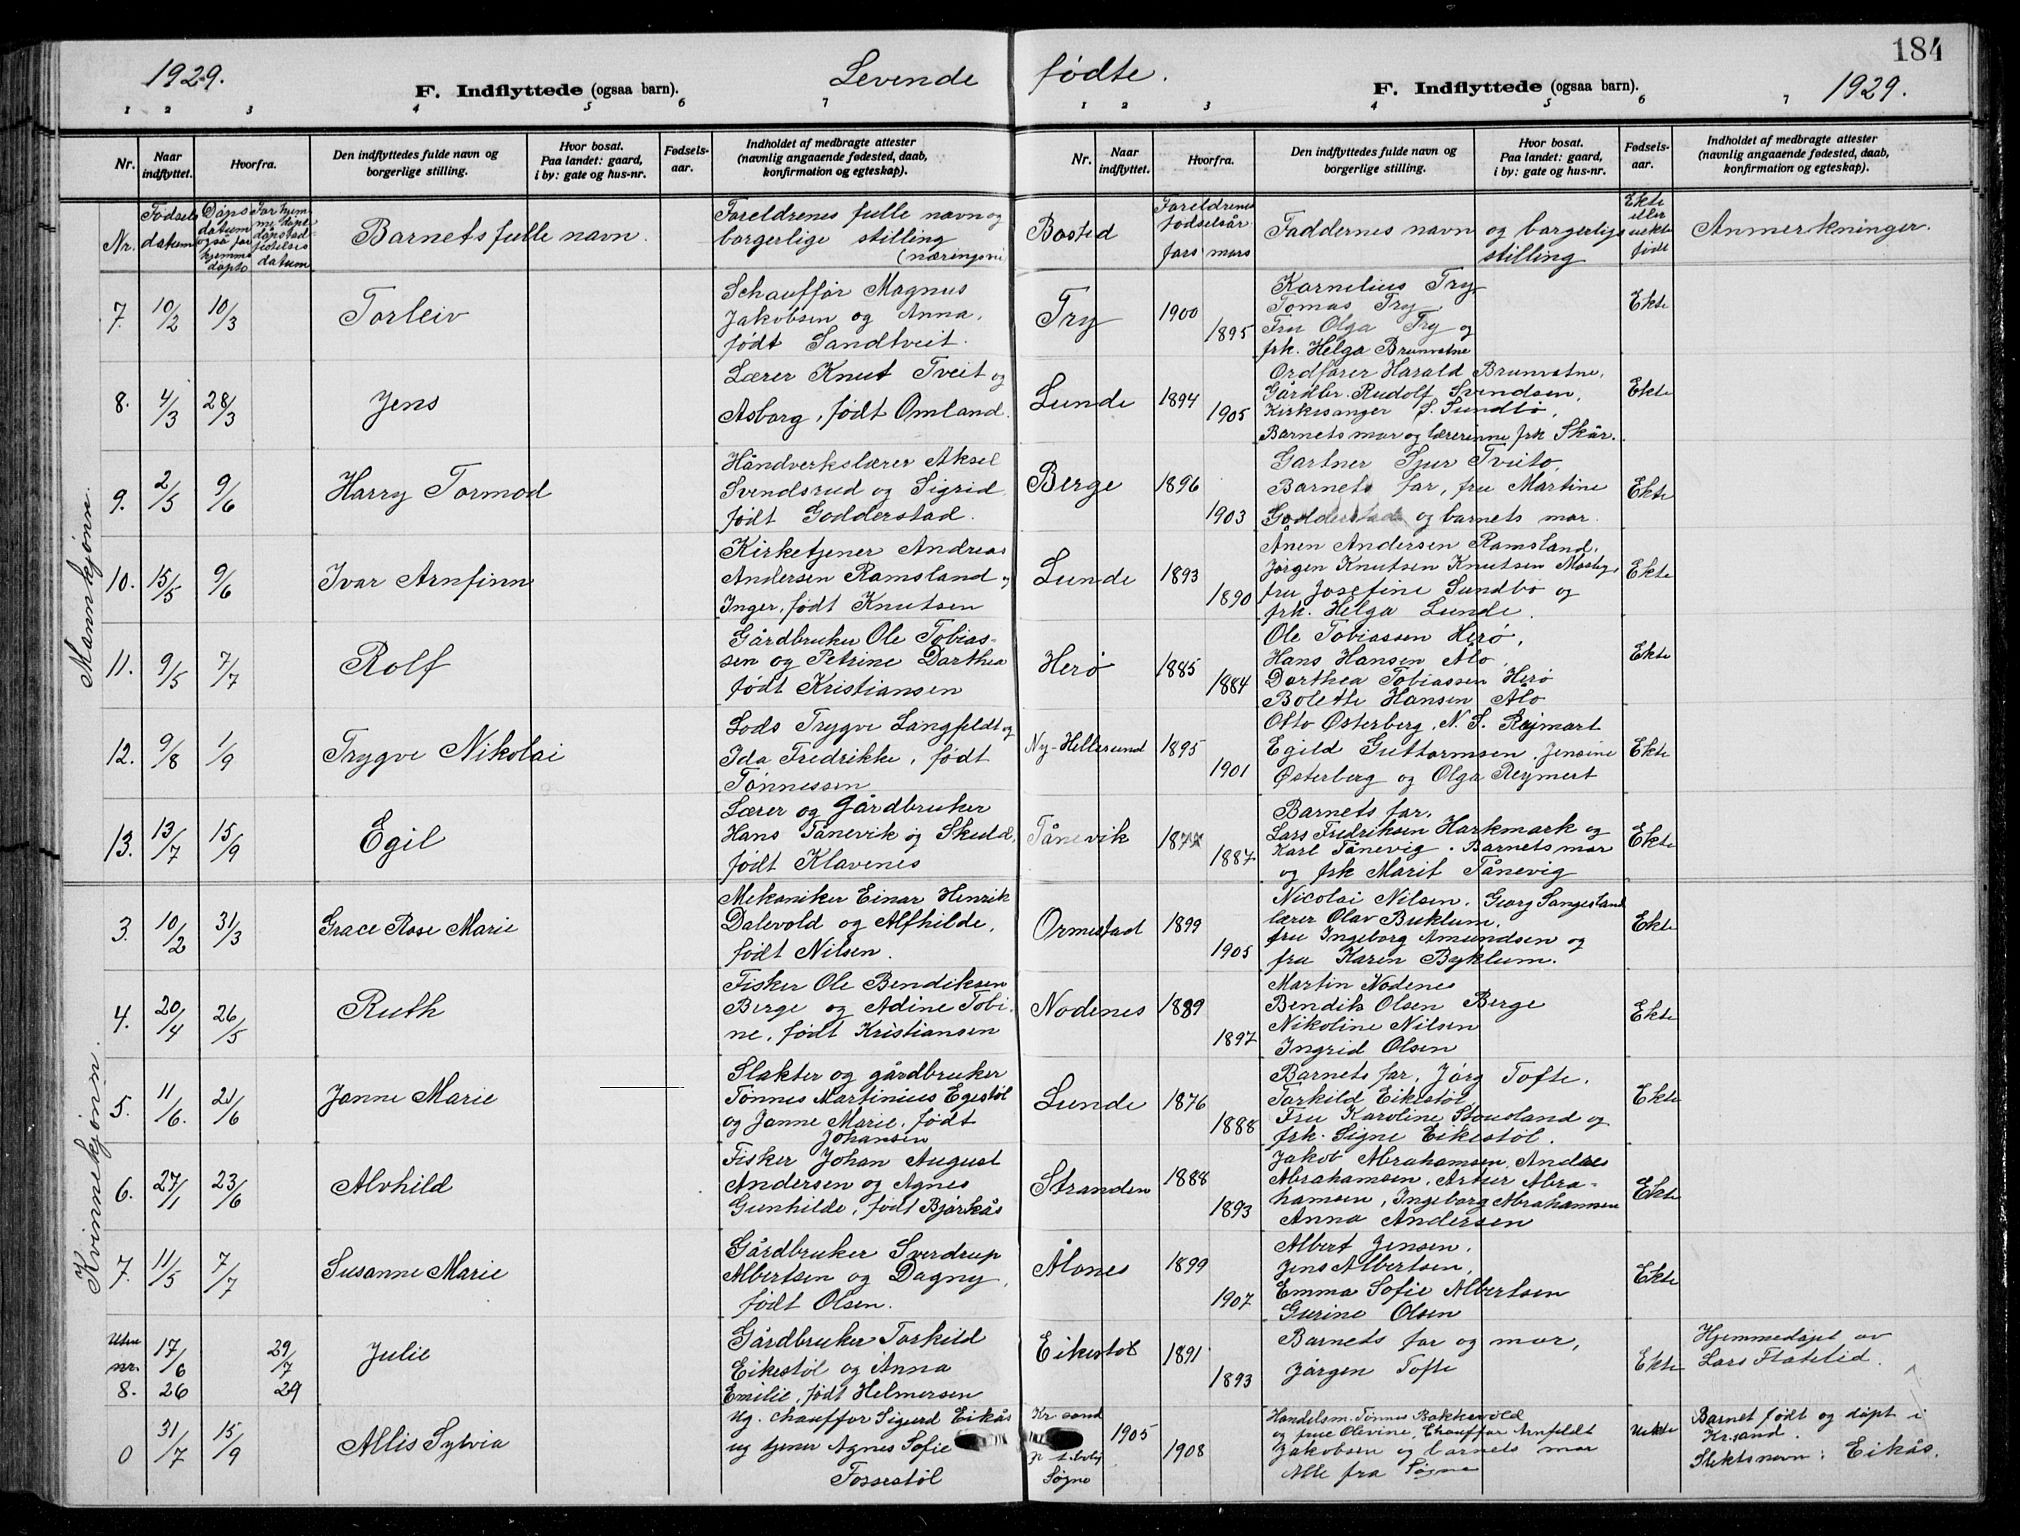 1929.
Levende
F. Indflyttede (ogsaa barn).
1 2 3 4 5 6 7
Nr.
Naar indflyttet.
Hvorfra.
Den indflyttedes fulde navn og borgerlige stilling.
Hvor bosat. Paa landet: gaard, i by: gate og hus-nr.
Fødselsaar.
Indholdet af medbragte attester (navnlig angaaende fødested, daab, konfirmation og egteskap).
Nr.
Fødsels datum
Dåps datum også for hjemmedøpte
Barnets fulle navn.
Foreldrenes fulle navn og
borgerlige stilling
(næringsvei
Mannkjønn.
7. 10/2 10/3 Torleiv
Schauffør Magnus
Jakobsen og Anna,
født Sandtveit.
8. 4/3 28/3 Jens
Lærer Knut Tveit og
Asborg, født Omland.
9. 2/5 9/6 Harry Tormod
Håndverkslærer Aksel
Svendsrud og Sigrid
født Godderstad.
10. 15/5 9/6 Ivar Arnfinn
Kirketjener Andreas
Andersen Ramsland og
Inger, født Knutsen
11. 9/5 7/7 Rolf
Gårdbruker Ole Tobias-
sen og Petrine Dorthea
født Kristiansen
12. 9/8 1/9 Trygve Nikolai
Lods Trygve Langfeldt og
Ida Fredrikke, født
Tønnessen
13. 13/7 15/9 Egil
Lærer og gårdbruker
Hans Tånevik og Skuld,
født Klavenes
Kvinnekjønn.
3. 10/2 31/3 Grace Rose Marie
Mekaniker Einar Henrik
Dalevold og Alfhilde,
født Nilsen.
4. 20/4 26/5 Ruth
Fisker Ole Bendiksen
Berge og Adine Tobi-
ne, født Kristiansen
5. 11/6. 21/6 Janne Marie
Slakter og gårdbruker
Tønnes Martinius Egestøl
og Janne Marie, født
Johansen
6. 27/1 23/6 Alvhild
Fisker Johan August
Andersen og Agnes
Gunhilde, født Bjørkås
7. 11/5 7/7 Susanne Marie
Gårdbruker Sverdrup
Albertsen og Dagny,
født Olsen.
Uten nr. 17/6 29/7 Julie
8. 26 29
Gårdbruker Torkild
Eikestøl og Anna
Emilie, født Helmersen
0 31/7 15/9 Allis Sylvia
Ug. chauffør Sigurd Eikås
ug tjener Agnes Sofie
Fossestøl
184
fødte.
1929.
F. Indflyttede (ogsaa barn).
1 2 3 4 5 6 7
Nr.
Naar indflyttet.
Hvorfra.
Den indflyttedes fulde navn og borgerlige stilling.
Hvor bosat. Paa landet: gaard, i by: gate og hus-nr.
Fødselsaar.
Indholdet af medbragte attester (navnlig angaaende fødested, daab, konfirmation og egteskap).
Bosted
Foreldrenes fødselsår
fars mors
Faddernes navn og borgerlige
stilling
Ekte eller uekte født
Anmerkninger.
Try 1900 1895
Kornelius Try,
Tomas Try,
Fru Olga Try og
frk. Helga Brunvatne
Ekte
Lunde 1894 1905
Ordfører Harald Brunvatne,
Gårdbr. Rudolf Svendsen,
Kirkesanger S. Sundbø,
Barnets mor og lærerinne frk Skår.
Ekte
Berge 1896 1903
Gartner Sjur Tveito,
Barnets far, fru Martine
Godderstad og barnets mor.
Ekte
Lunde 1893 1890
Ånen Andersen Ramsland,
Jørgen Knutsen Knutsen
fru Josefine Sundbø og
frk. Helga Lunde.
Ekte
Herø 1885 1884
Ole Tobiassen Herø,
Hans Hansen Alo,
Dorthea Tobiassen Herø
Bolette Hansen Alo
Ekte
Ny-Hellesund 1895 1901
Otto Østerberg, N. S. Rejmart
Egild Guttormsen, Jensine
Østerberg og Olga Reymert
Ekte
Tånevik 1887
Barnets far,
Lars Fredriksen Harkmark og
Karl Tånevig. Barnets mor
og frk Marit Tånevig
Ekte
Ormestad 1899 1905
Nicolai Nilsen, Georg Sangesland
lærer Olav Buklum,
fru Ingeborg Amundsen og
fru Karen Byklum.
Ekte
Nodenes 1889 1897
Martin Nodenes
Bendik Olsen Berge
Nikoline Nilsen
Ingrid Olsen
Ekte
Lunde 1876 1888
Barnets far, Jørg Tofte,
Torkild Eikestøl,
Fru Karoline Stousland og
frk. Signe Eikestøl.
Ekte
Stranden 1888 1893
Jakob Abrahamsen, Andreas
Abrahamsen, Artur Abra-
hamsen, Ingeborg Abrahamsen
Anna Andersen
Ekte
Ålones 1899 1907
Albert Jensen,
Jens Albertsen,
Emma Sofie Albertsen
Gurine Olsen
Ekte
Eikestøl 1891 1893
Barnets far og mor,
Jørgen Tofte
Ekte
Hjemmedøpt av
Lars Flatelid.
Kr sand
Søgne
1905 1908
Handelsm. Tønnes Bakkevold
og frue Olevine, Chauffør Arnfeldt
Jakobsen og barnets mor
Alle fra Søgne
Uekte
Barnet født og døpt i
Kr.sand.
Slektsnavn: Eikås.